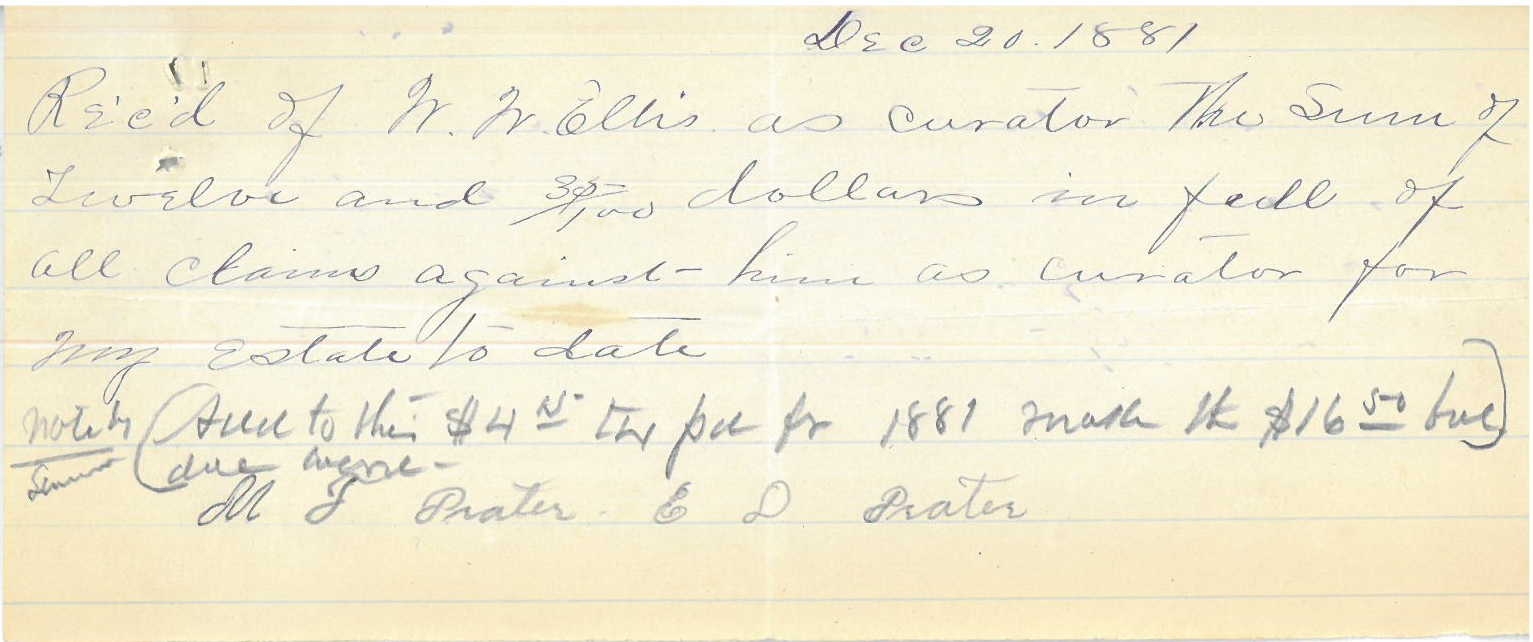 Dec 20. 1881
Re'c'd of W. W. Ellis as curator The Sum of
Twelve and 35/100 dollars in full of
all claims against him as curator for
my Estate to date
note by (Add to this $4 15 tax pd for 1881 make the $16 50 bal)
due
M J Prater. E D Prater